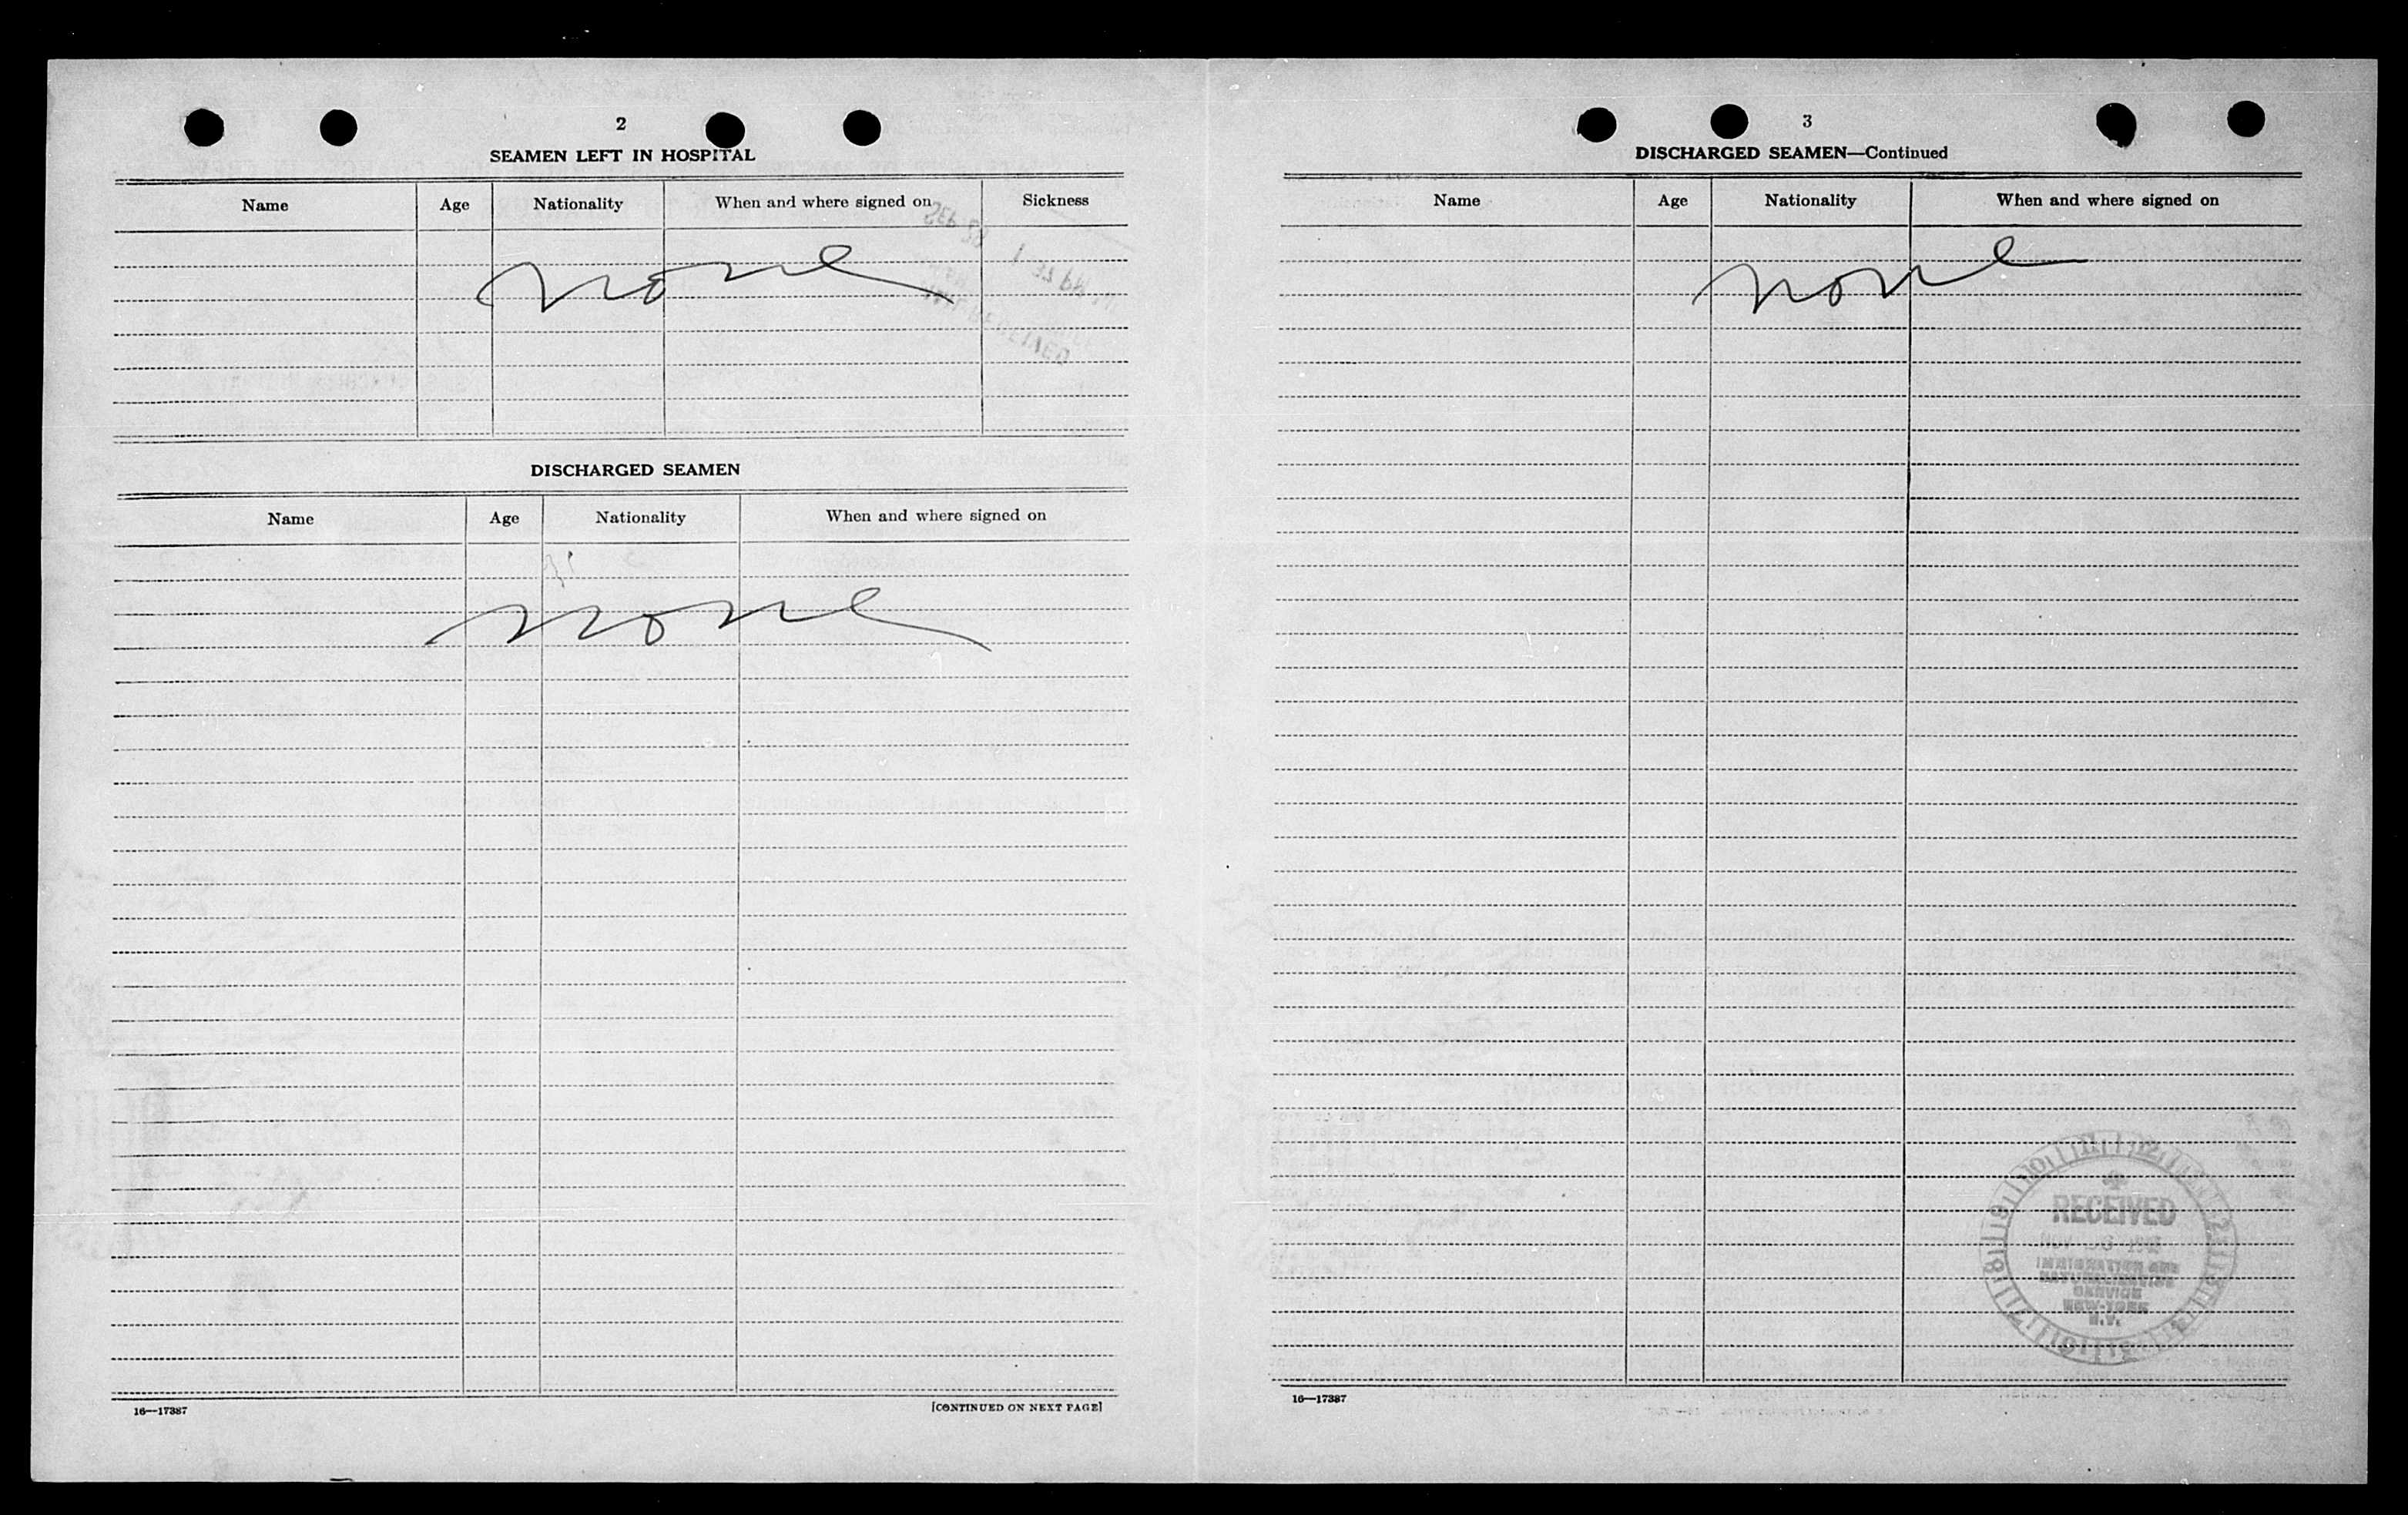 2
SEAMEN LEFT IN HOSPITAL
Name Age Nationality When and where signed on Sickness
None
DISCHARGED SEAMEN
Name Age Nationality When and where signed on
None
16—17387 [CONTINUED ON NEXT PAGE]
3
DISCHARGED SEAMEN—Continued
Name Age Nationality When and where signed on
None
RECEIVED
IMMIGRATION AND
NATURALIZATION
SERVICE
NEW-YORK
N.Y.
16—17387